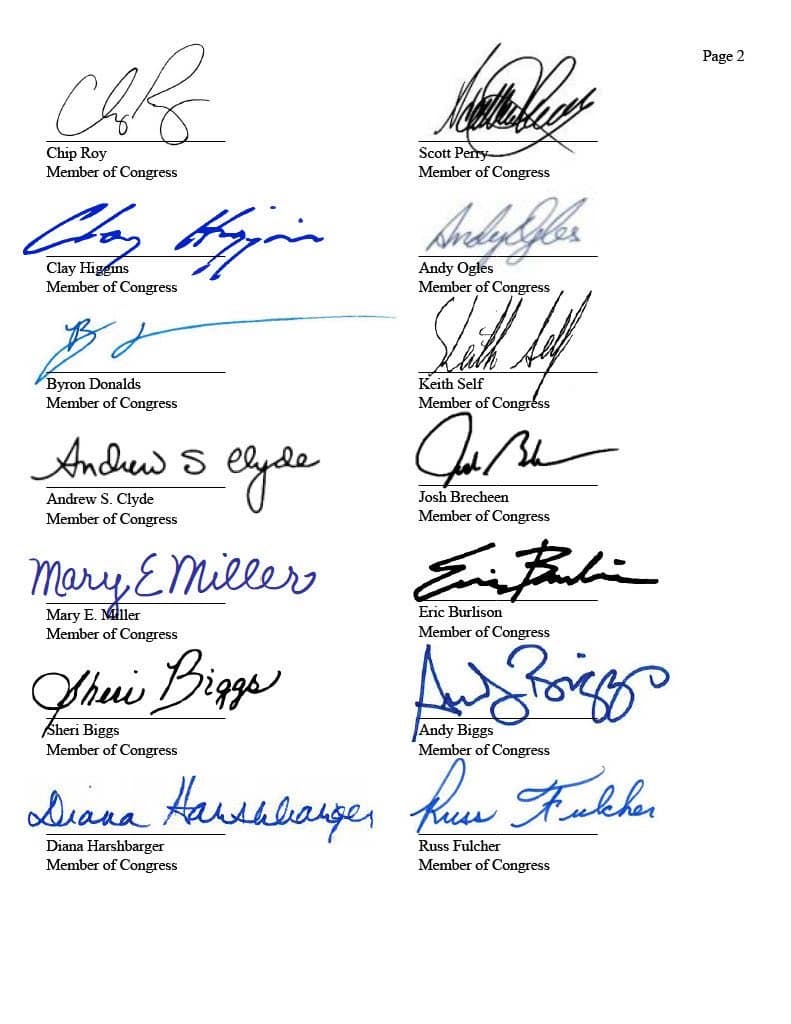 Page 2
Chip Roy
Chip Roy
Member of Congress
Scott Perry
Member of Congress
Clay Higgins
Clay Higgins
Member of Congress
Andy Ogles
Andy Ogles
Member of Congress
Byron Donalds
Member of Congress
Keith Self
Keith Self
Member of Congress
Andrew S Clyde
Andrew S. Clyde
Member of Congress
Josh Brecheen
Member of Congress
Mary E Miller
Mary E. Miller
Member of Congress
Eric Burlison
Eric Burlison
Member of Congress
Sheri Biggs
Sheri Biggs
Member of Congress
Andy Biggs
Andy Biggs
Member of Congress
Diana Harshbarger
Diana Harshbarger
Member of Congress
Russ Fulcher
Russ Fulcher
Member of Congress